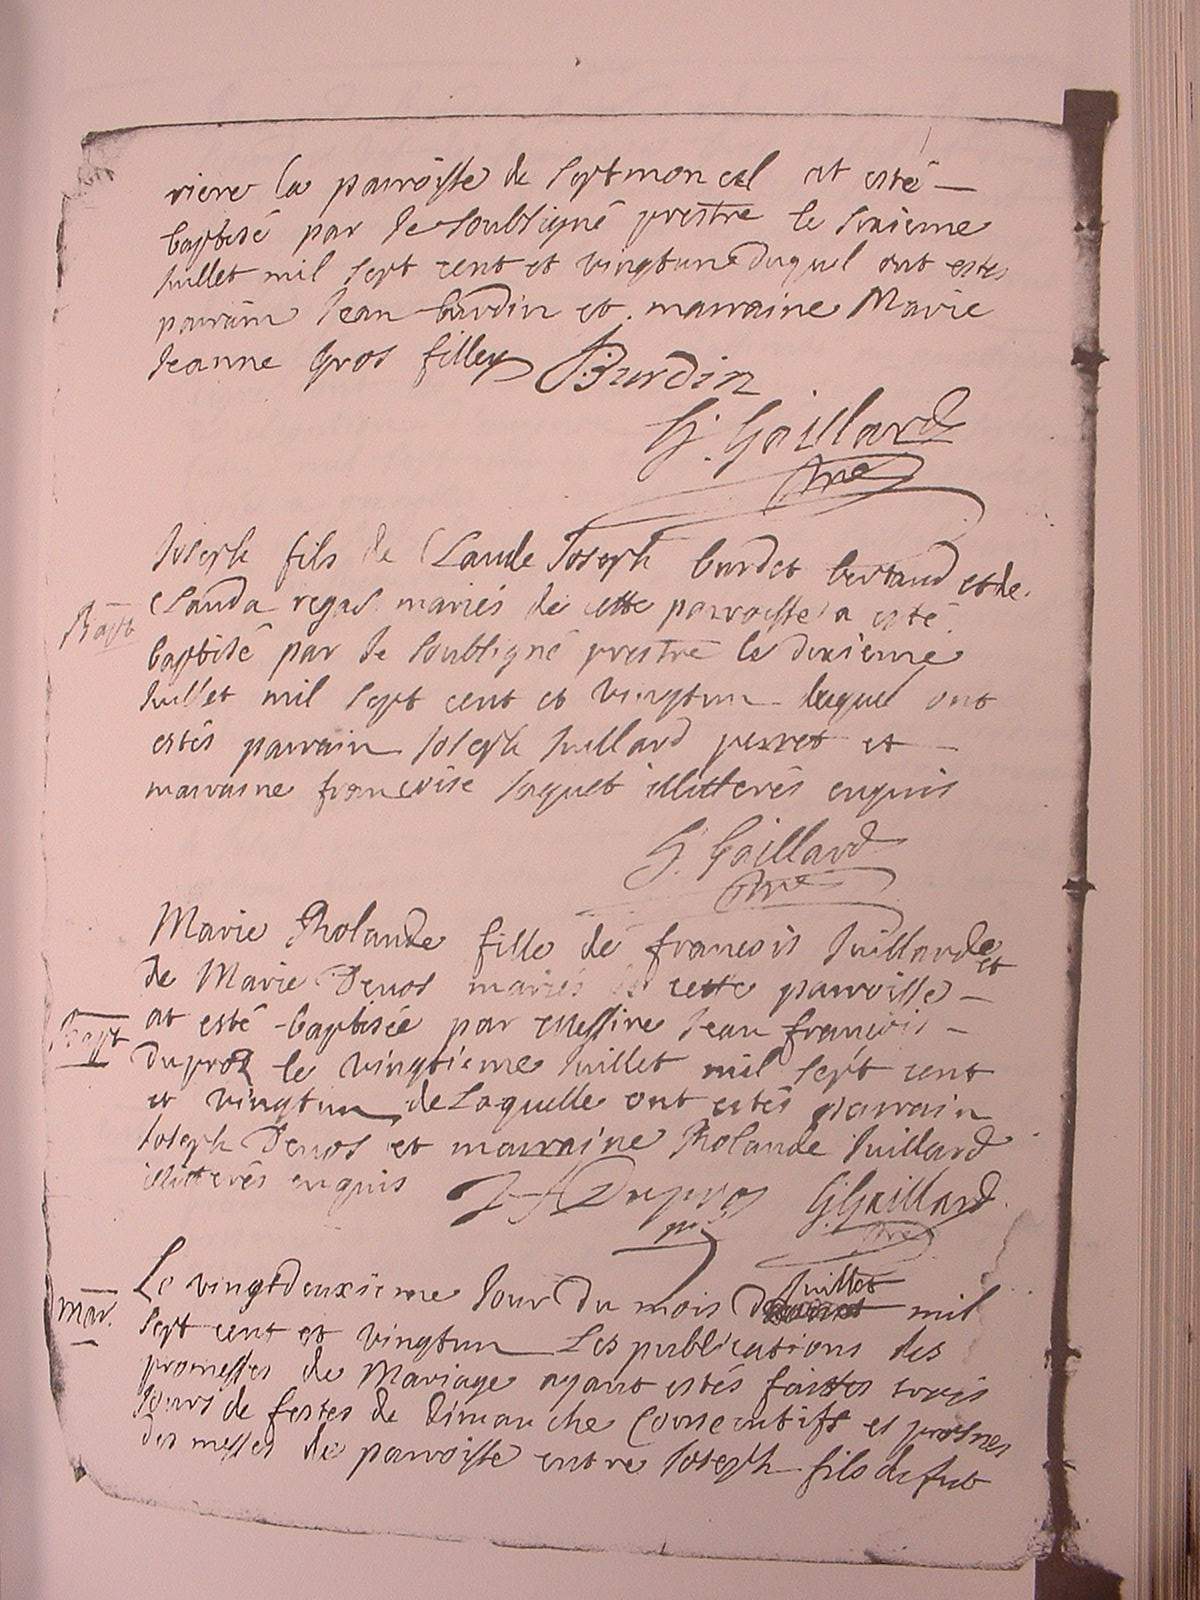 riere la parroisse de septmoncel at esté
baptisé par le soubsigné prestre le sixieme
Juillet mil sept cent et vingtun duquel ont estes
parrain Jean burdin et marraine Marie
Jeanne Gros filley Burdin
G. Gaillard
pre
Joseph fils de Claude Joseph burdet bertand et de
Clauda regal mariés de cette parroisse a esté
Bapt
baptisé par le soubsigné prestre le dixieme
Juillet mil sept cent et vingtun lequel ont
estés parrain Joseph Juillard perret et
marraine francoise Jaquet illitterés enquis
G. Gaillard
pre
Marie Rolande fille de francois Juillard et
de Marie Denos mariés de cette parroisse
at esté baptisée par Messire Jean francois
Bapt
duproz le vingtieme Juillet mil sept cent
et vingtun de Laquelle ont estés parrain
Joseph Denos et marraine Rolande Juillard
illitterés enquis J F Duproz G. Gaillard
pre pre
Le vingtdeuxieme Jour du mois de Juillet mil
Mar.
sept cent et vingtun Les publications des
promesses de Mariage ayant estés faittes trois
Jours de festes de dimanche Consecutifs es prosnes
des messes de parroisse entre Joseph fils de fut